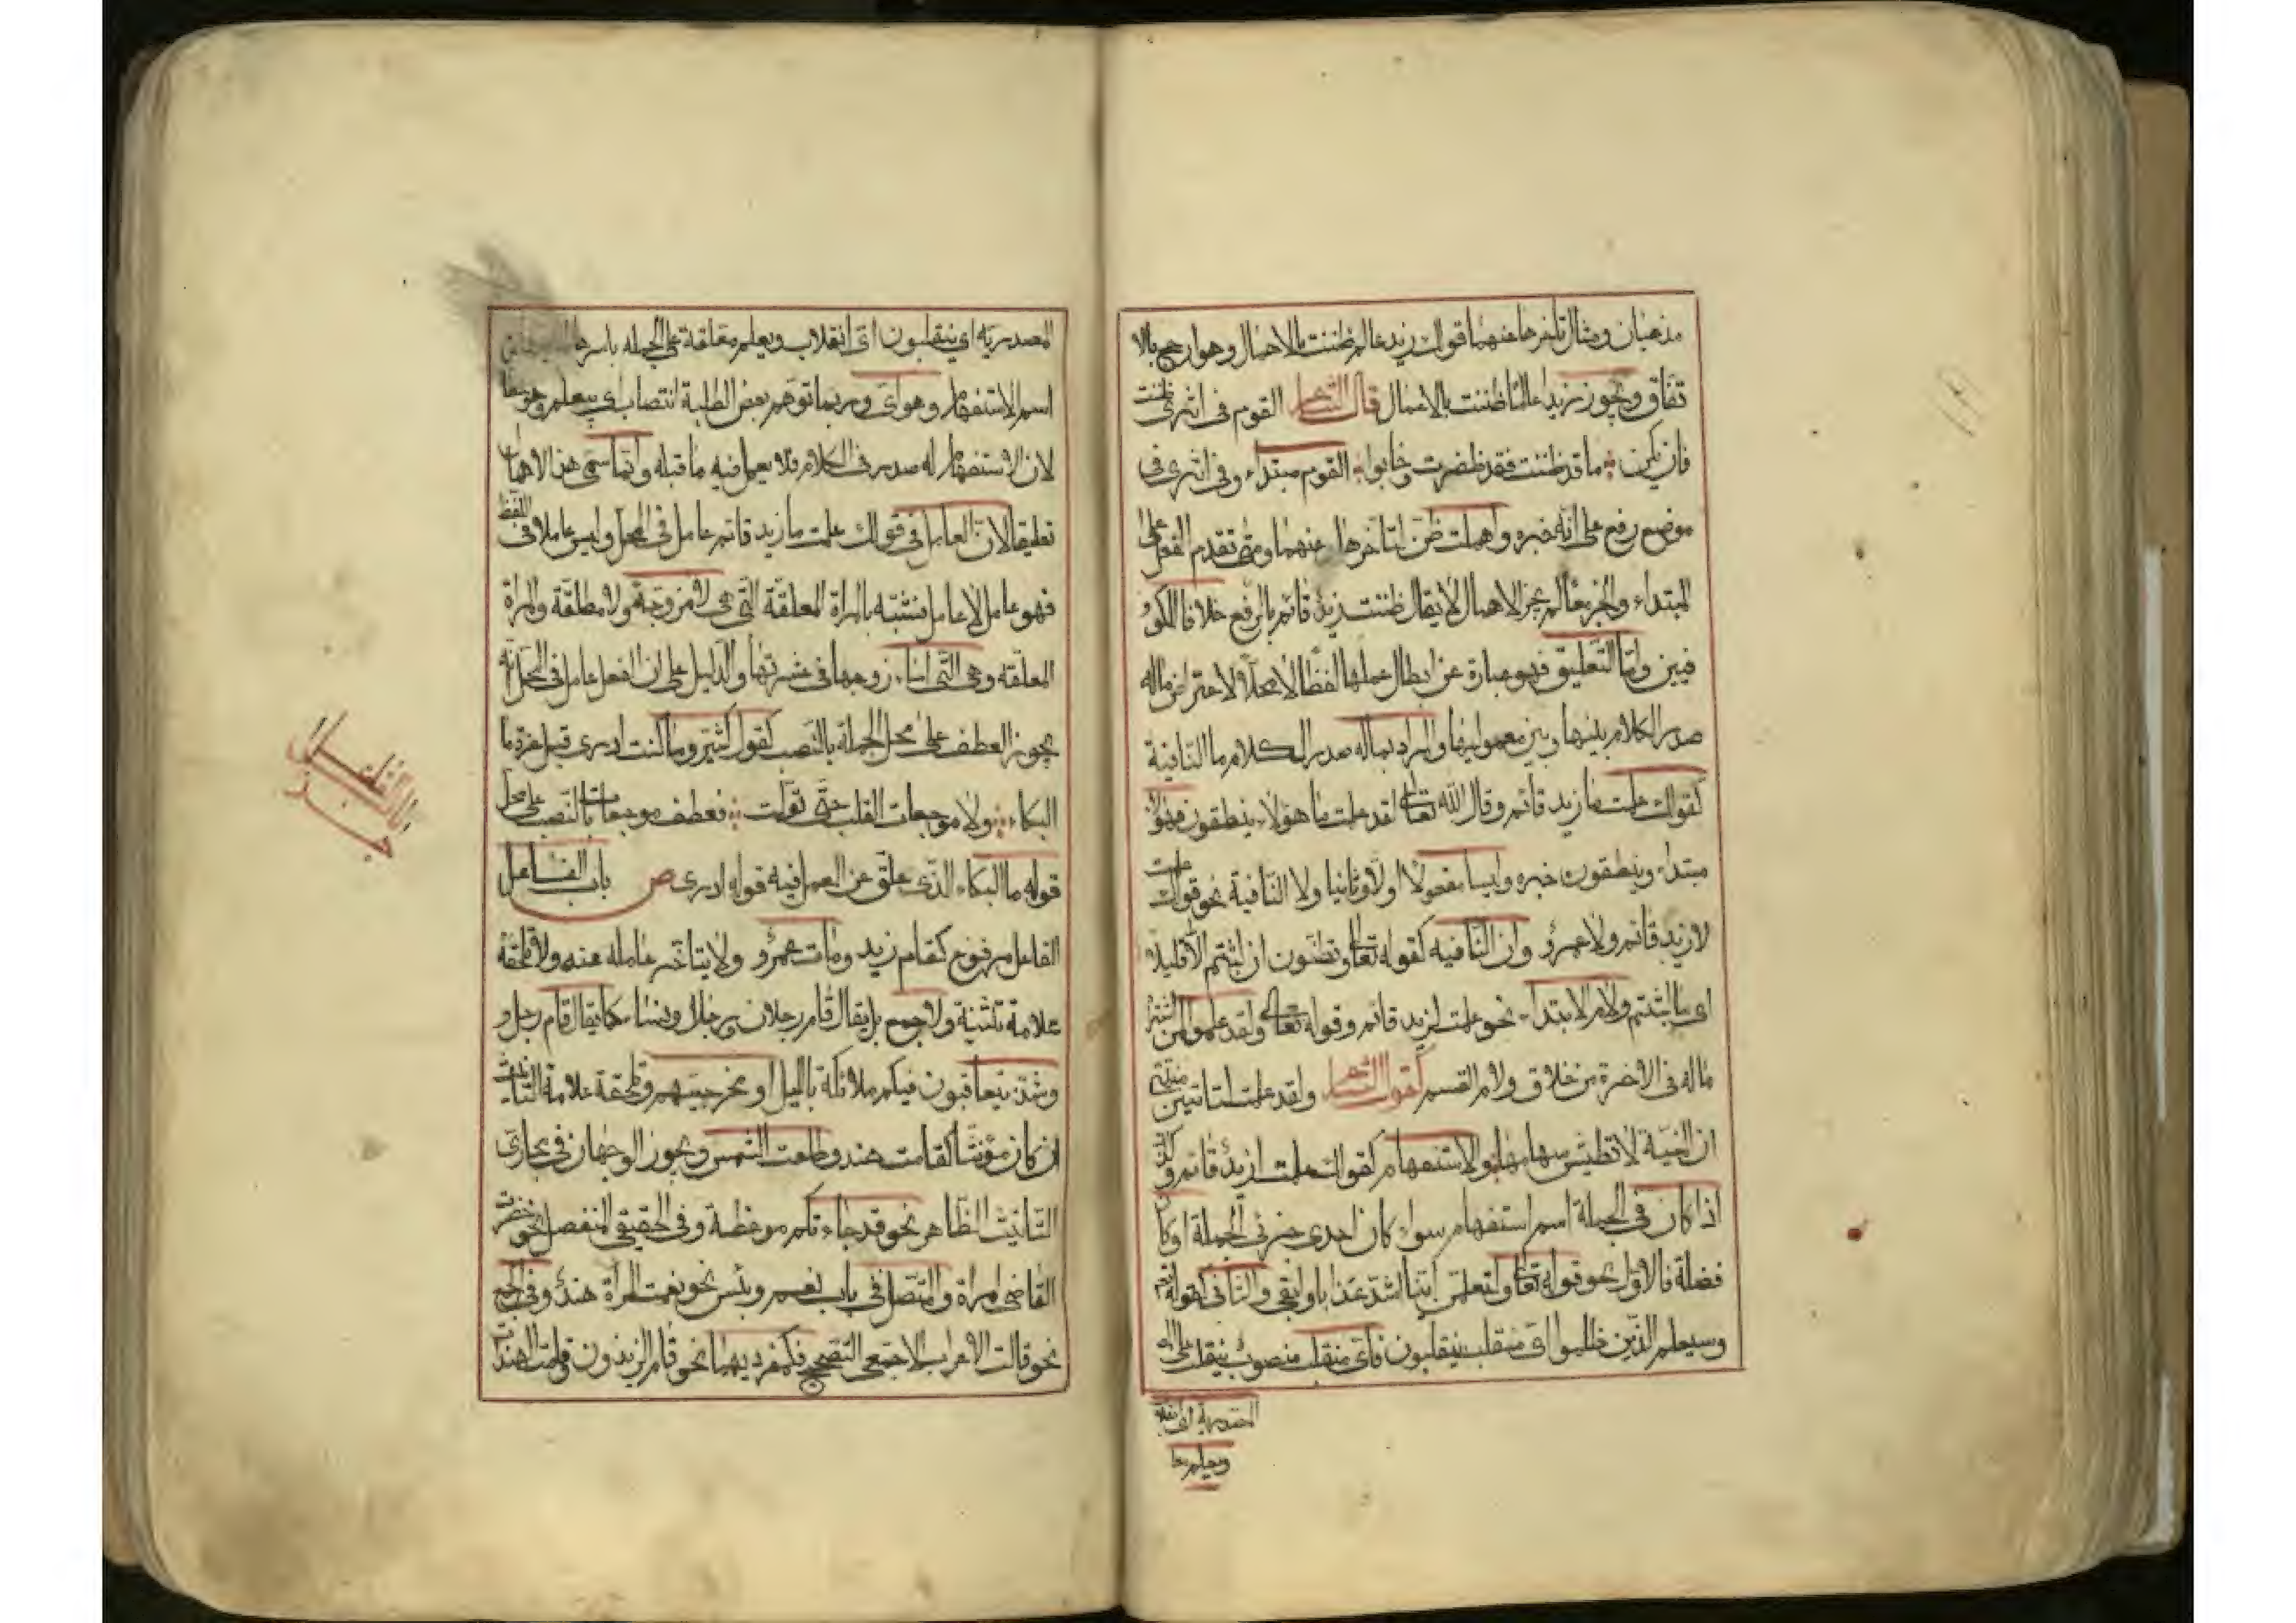 مذهبان ومثال تأخرها عنهما قولك زيد عالم ظننت بالاهمال وهو ارجح بالا
تفاق ويجوز زيدا عالما ظننت بالاعمال قال الشاعر القوم في اثري ظننت
فان يكن ما قد ظننت فقد ظفرت وخابوا القوم مبتداء وفي اثري في
موضع رفع على انه خبره واهملت ظن لتأخرها عنهما ومتى تقدم الفعل على
المبتداء والخبر معا لم يجز الاهمال لا يقال ظننت زيد قائم بالرفع خلافا للكو
فيين واما التعليق فهو عبارة عن ابطال عملها لفظا لا محلا لاعتراض ماله
صدر الكلام بينها وبين معموليها والمراد بما له صدر الكلام ما النافية
كقولك علمت ما زيد قائم وقال الله تعالى لقد علمت ما هؤلاء ينطقون فهؤلاء
مبتداء وينطقون خبره وليسا مفعولا اولا وثانيا ولا النافية نحو قولك علمت
لا زيد قائم ولا عمرو وان النافيه كقوله تعالى وتظنون ان لبثتم الا قليلا
اي ما لبثتم ولام الابتداء نحو علمت لزيد قائم وقوله تعالى ولقد علموا لمن اشتراه
ما له في الاخرة من خلاق ولام القسم كقول الشاعر ولقد علمت لتاتين منيتي
ان المنية لا تطيش سهامها والاستفهام كقولك علمت ازيد قائم وكذا
اذا كان في الجملة اسم استفهام سواء كان احدى جزئي الجملة او كان
فضلة فالاول نحو قوله تعالى ولتعلمن اينا اشد عذابا وابقى والثاني كقوله
وسيعلم الذين ظلموا اي منقلب ينقلبون فاي منقلب منصوب بينقلبون على
المصدرية اي
ويعلم معا
المصدريه اي ينقلبون اي انقلاب ويعلم معلقة عن الجمله باسرها
اسم الاستفهام وهو اي وربما توهم بعض الطلبة انتصاب اي بيعلم وهو خطا
لان الاستفهام له صدر في الكلام فلا يعمل فيه ما قبله وانما سمي هذا الاهمال
تعليقا لان العامل في قولك علمت ما زيد قائم عامل في المحل وليس عاملا في اللفظ
فهو عامل لا عامل فتشبه بالمراة المعلقة التي هي لا مزوجة ولا مطلقة والمراة
المعلقه وهي التي اساء زوجها في عشرتها والدليل على ان الفعل عامل في المحل انه
يجوز العطف على محل الجملة بالنصب كقول كثير وما كنت ادري قبل عزة ما
البكاء ولا موجعات القلب حتى تولت فعطف موجعات بالنصب على محل
قوله ما البكاء الذي علق عن العمل فيه قوله ادرى ص باب الفاعل
الفاعل مرفوع كقام زيد ومات عمرو ولا يتاخر عامله عنه ولا تلحقه
علامة تثنية ولا جمع بل يقال قام رجلان ورجال ونساء كما يقال قام رجل و
وشذ يتعاقبون فيكم ملائكة بالليل او مخرجي هم وتلحقة علامة التأنيث
ان كان مؤنثا كقامت هند وطلعت الشمس ويجوز الوجهان في مجازي
التانيث الظاهر نحو قد جاءتكم موعظة وفي الحقيقي المنفصل نحو حضرت
القاضي امراة والمتصل في باب نعم وبئس نحو نعمت المراة هند وفي الجمع
نحو قالت الاعراب الا جمعي التصحيح فكمفرديهما نحو قام الزيدون وقامت الهندات